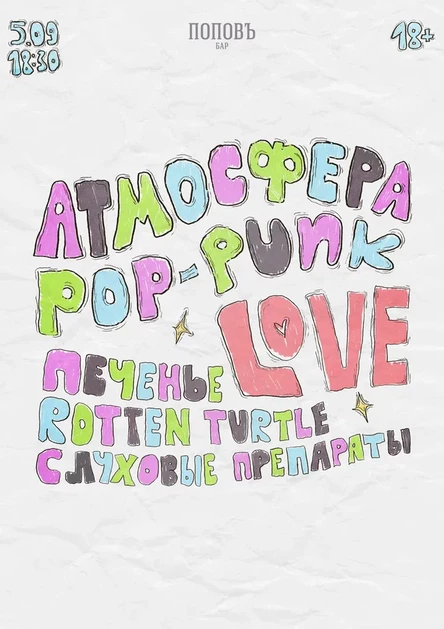 5.09
18:30
ПОПОВЪ
БАР
18+
АТМОСФЕРА
POP-PUNK
LOVE
ПЕЧЕНЬЕ
ROTTEN TURTLE
СЛУХОВЫЕ ПРЕПАРАТЫ